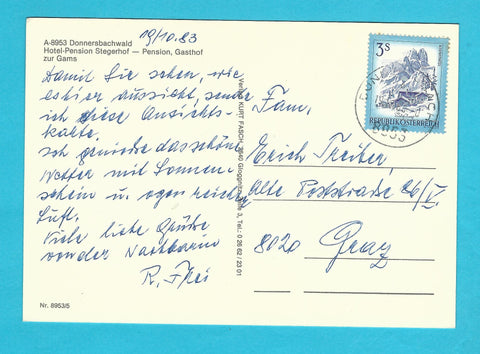 19/10.83
A-8953 Donnersbachwald
Hotel-Pension Stegerhof — Pension, Gasthof
zur Gams
Damit Sie sehen, wie
es hier aussieht, sende
ich diese Ansichts-
karte.
Ich genieße das schöne
Wetter mit Sonnen-
schein u. ozonreicher
Luft.
Viele liebe Grüße
von der Nachbarin
R. Frei
Nr. 8953/5
Verlag KURT FASCH, Gloggnitz, Tel.: 0 26 62 / 23 01
Fam.
Erich Treiber,
Alte Poststraße
8020 Graz
3 S
REPUBLIK ÖSTERREICH
8953